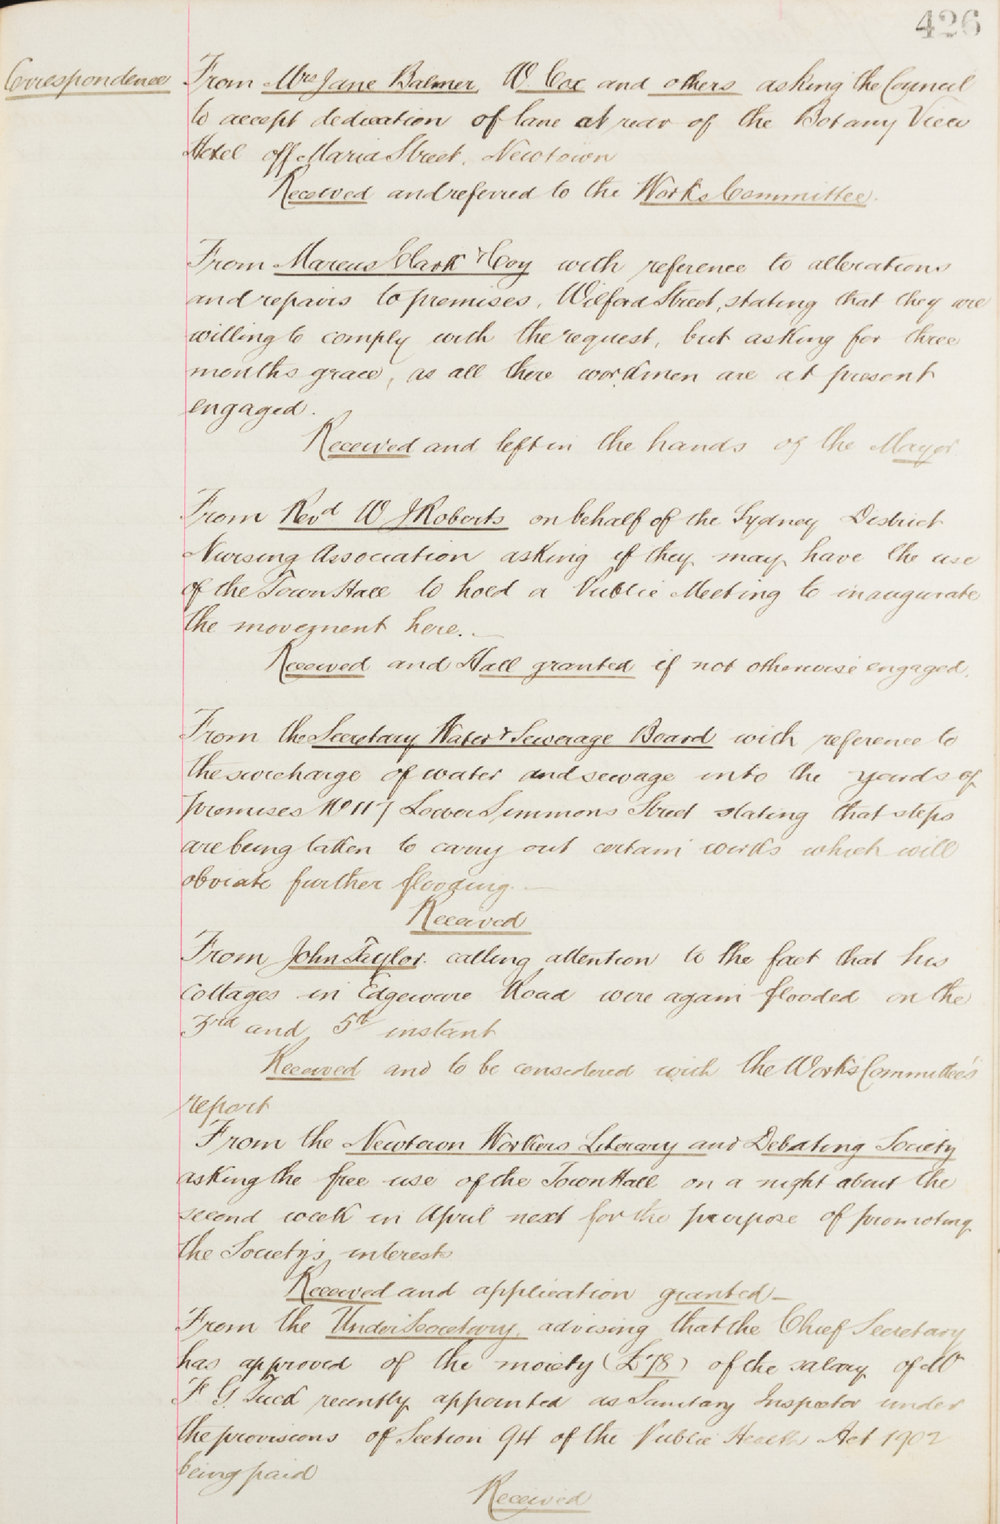 426
Correspondence From Mrs Jane Balmer, W Cox and others asking the Council
to accept dedication of lane at rear of the Botany View
Hotel off Maria Street, Newtown
Received and referred to the Works Committee.
From Marcus Clark & Coy with reference to alterations
and repairs to premises, Wilford Street, stating that they are
willing to comply with the request, but asking for three
months grace, as all there workmen are at present
engaged.
Received and left in the hands of the Mayor
From Revd W J Roberts on behalf of the Sydney District
Nursing Association asking if they may have the use
of the Town Hall to hold a Public Meeting to inaugurate
the movement here. —
Received and Hall granted if not otherwise engaged.
From the Secretary Water & Sewerage Board with reference to
the surcharge of water and sewage into the yards of
premises No 117 Lower Simmons Street stating that steps
are being taken to carry out certain works which will
obviate further flooding. —
Received
From John Taylor. calling attention to the fact that his
Cottages in Edgeware Road were again flooded on the
3rd and 5th instant
Received and to be considered with the Works Committee's
report
From the Newtown Workers Literary and Debating Society
asking the free use of the Town Hall on a night about the
second week in April next for the purpose of promoting
the Society's interests
Received and application granted —
From the Under Secretary, advising that the Chief Secretary
has approved of the moiety (£78) of the salary of Mr
F. G. Tuck recently appointed as Sanitary Inspector under
the provisions of Section 94 of the Public Health Act 1902
being paid
Received